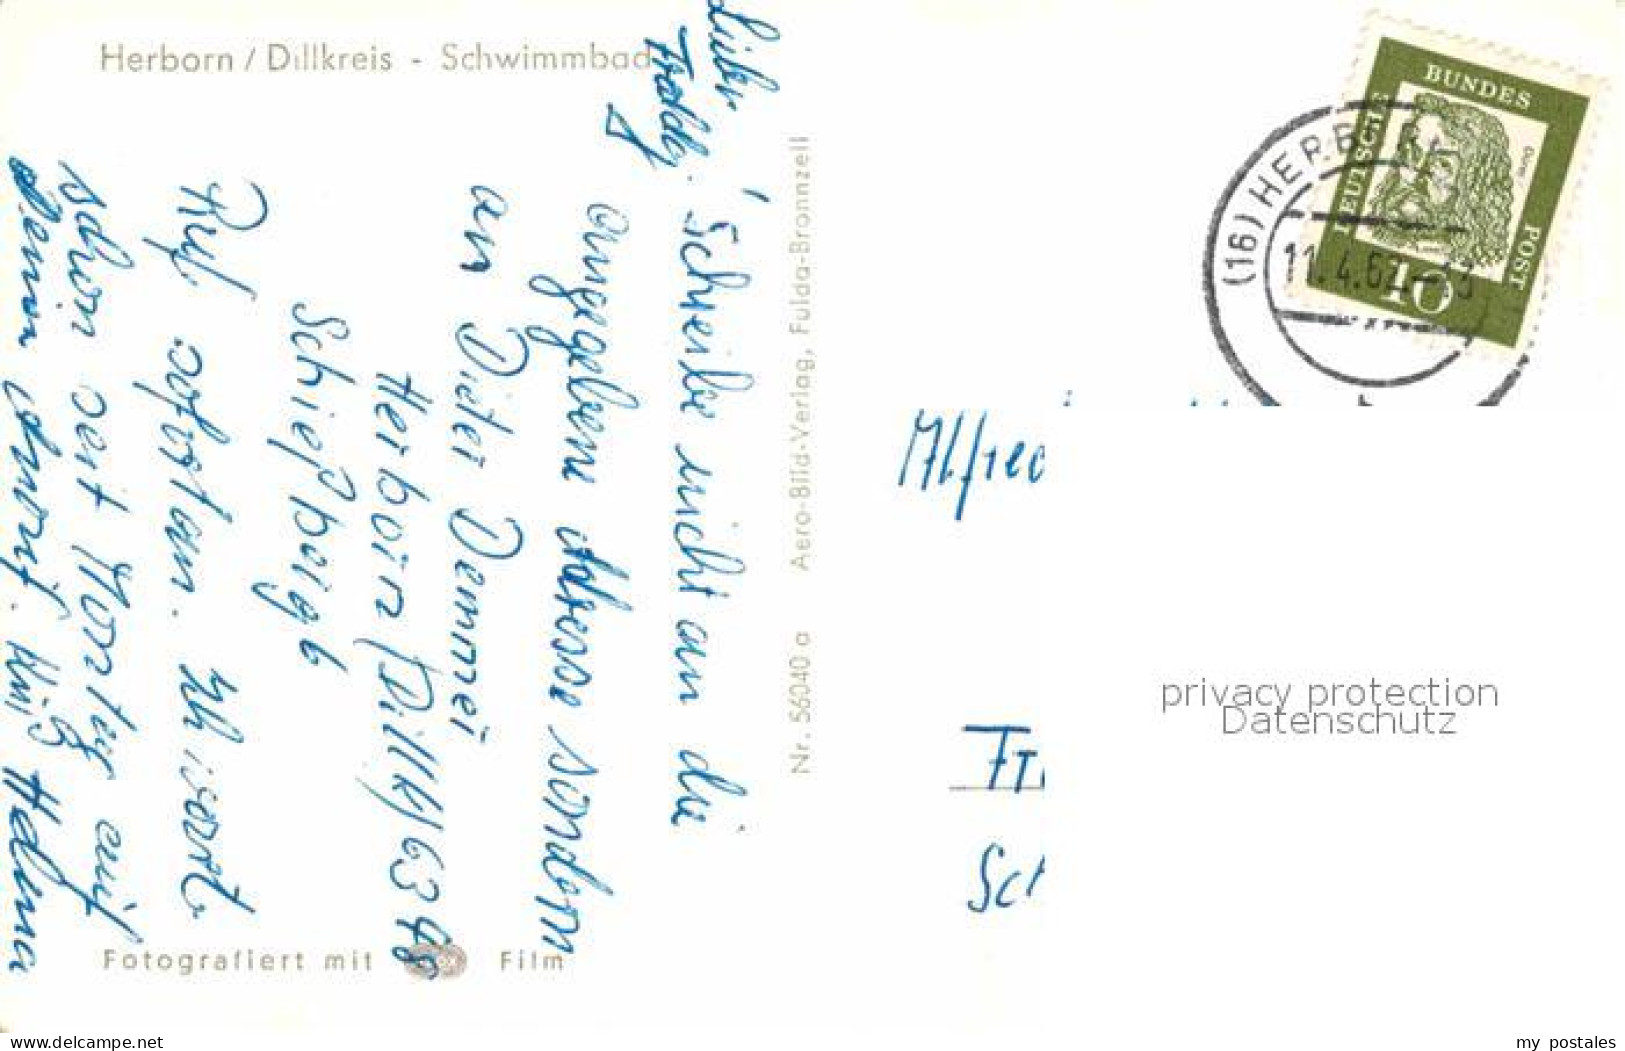 Herborn / Dillkreis - Schwimmbad
Lieber
Freddy!
Schreibe nicht an die
angegebene Adresse sondern
an Dieter Demmer
Herborn (Dillk) 6348
Schießberg 6
Ruf sofort an. Ich warte
schon seit Montag auf
deinen Anruf. Gruß Helma
Nr. 56040 a Aero-Bild-Verlag, Fulda-Bronnzell
Fotografiert mit Film
DEUTSCHE
BUNDES
POST
10
(16) HERBORN
11.4.62.-13
Alfred
Fr
Sch
privacy protection
Datenschutz
www.delcampe.net
my_postales